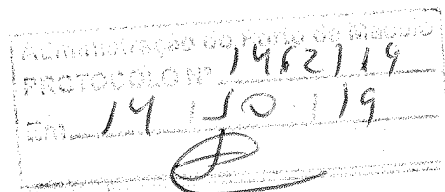 Administração do Porto de Maceió
PROTOCOLO Nº 1962/19
Em 14 / 10 / 19